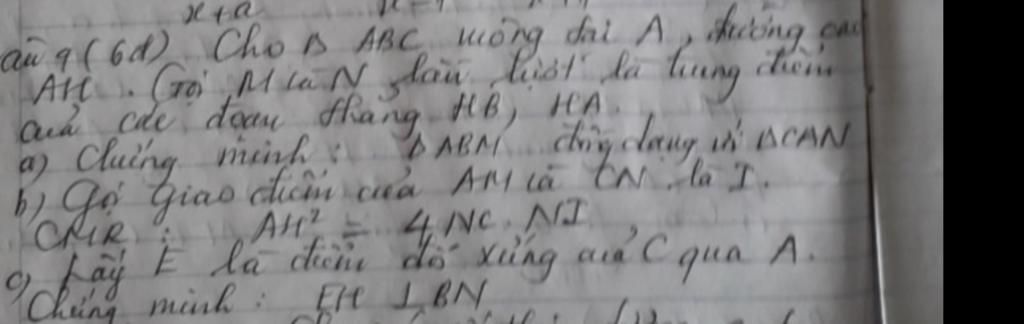 x+a
Câu 9 (6đ) Cho Δ ABC vuông tại A, đường cao
AH. Gọi M và N lần lượt là trung điểm
của các đoạn thẳng HB, HA.
a) Chứng minh: Δ ABM đồng dạng với ΔCAN
b) Gọi giao điểm của AM và CN là I.
CMR: AH² = 4 NC. NI
c) Lấy E là điểm đối xứng của C qua A.
Chứng minh: EH ⊥ BN